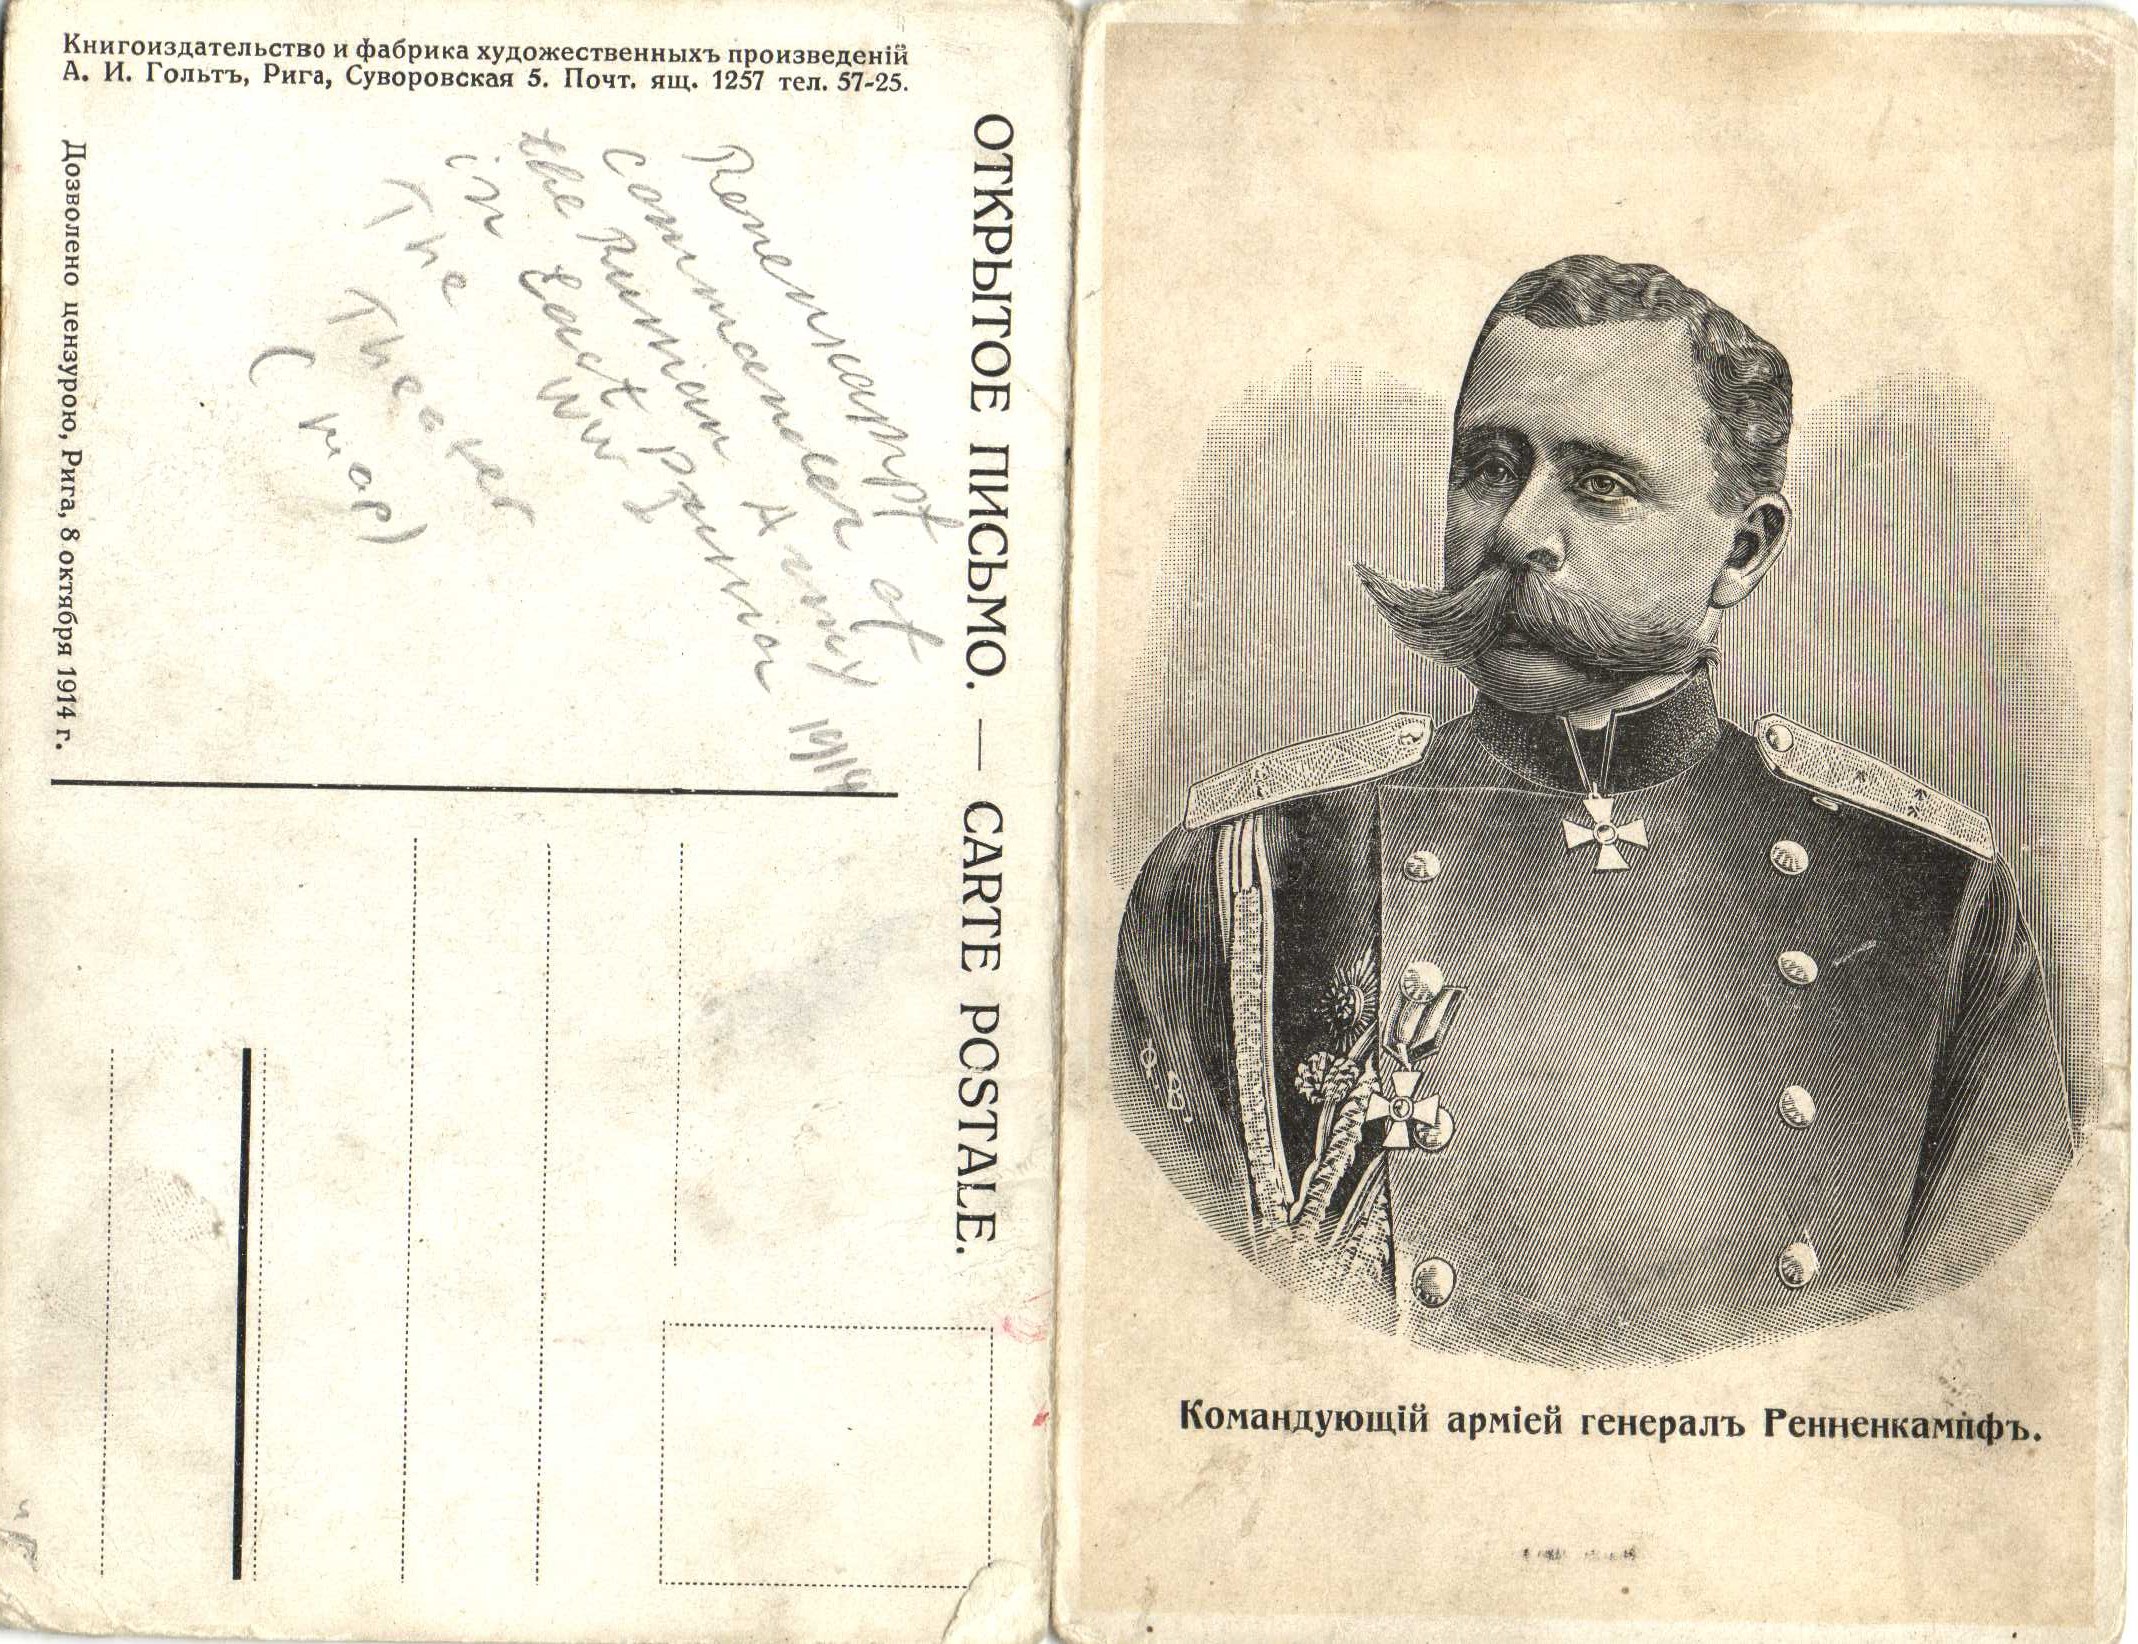 Книгоиздательство и фабрика художественныхъ произведенiй
А. И. Гольтъ, Рига, Суворовская 5. Почт. ящ. 1257 тел. 57-25.
Дозволено цензурою, Рига, 8 октября 1914 г.
ОТКРЫТОЕ ПИСЬМО. — CARTE POSTALE.
Renenkampf
commander of
the Russian Army
in East Prussia 1914
WW I
The Theater
(map)
Командующiй армiей генералъ Ренненкампфъ.